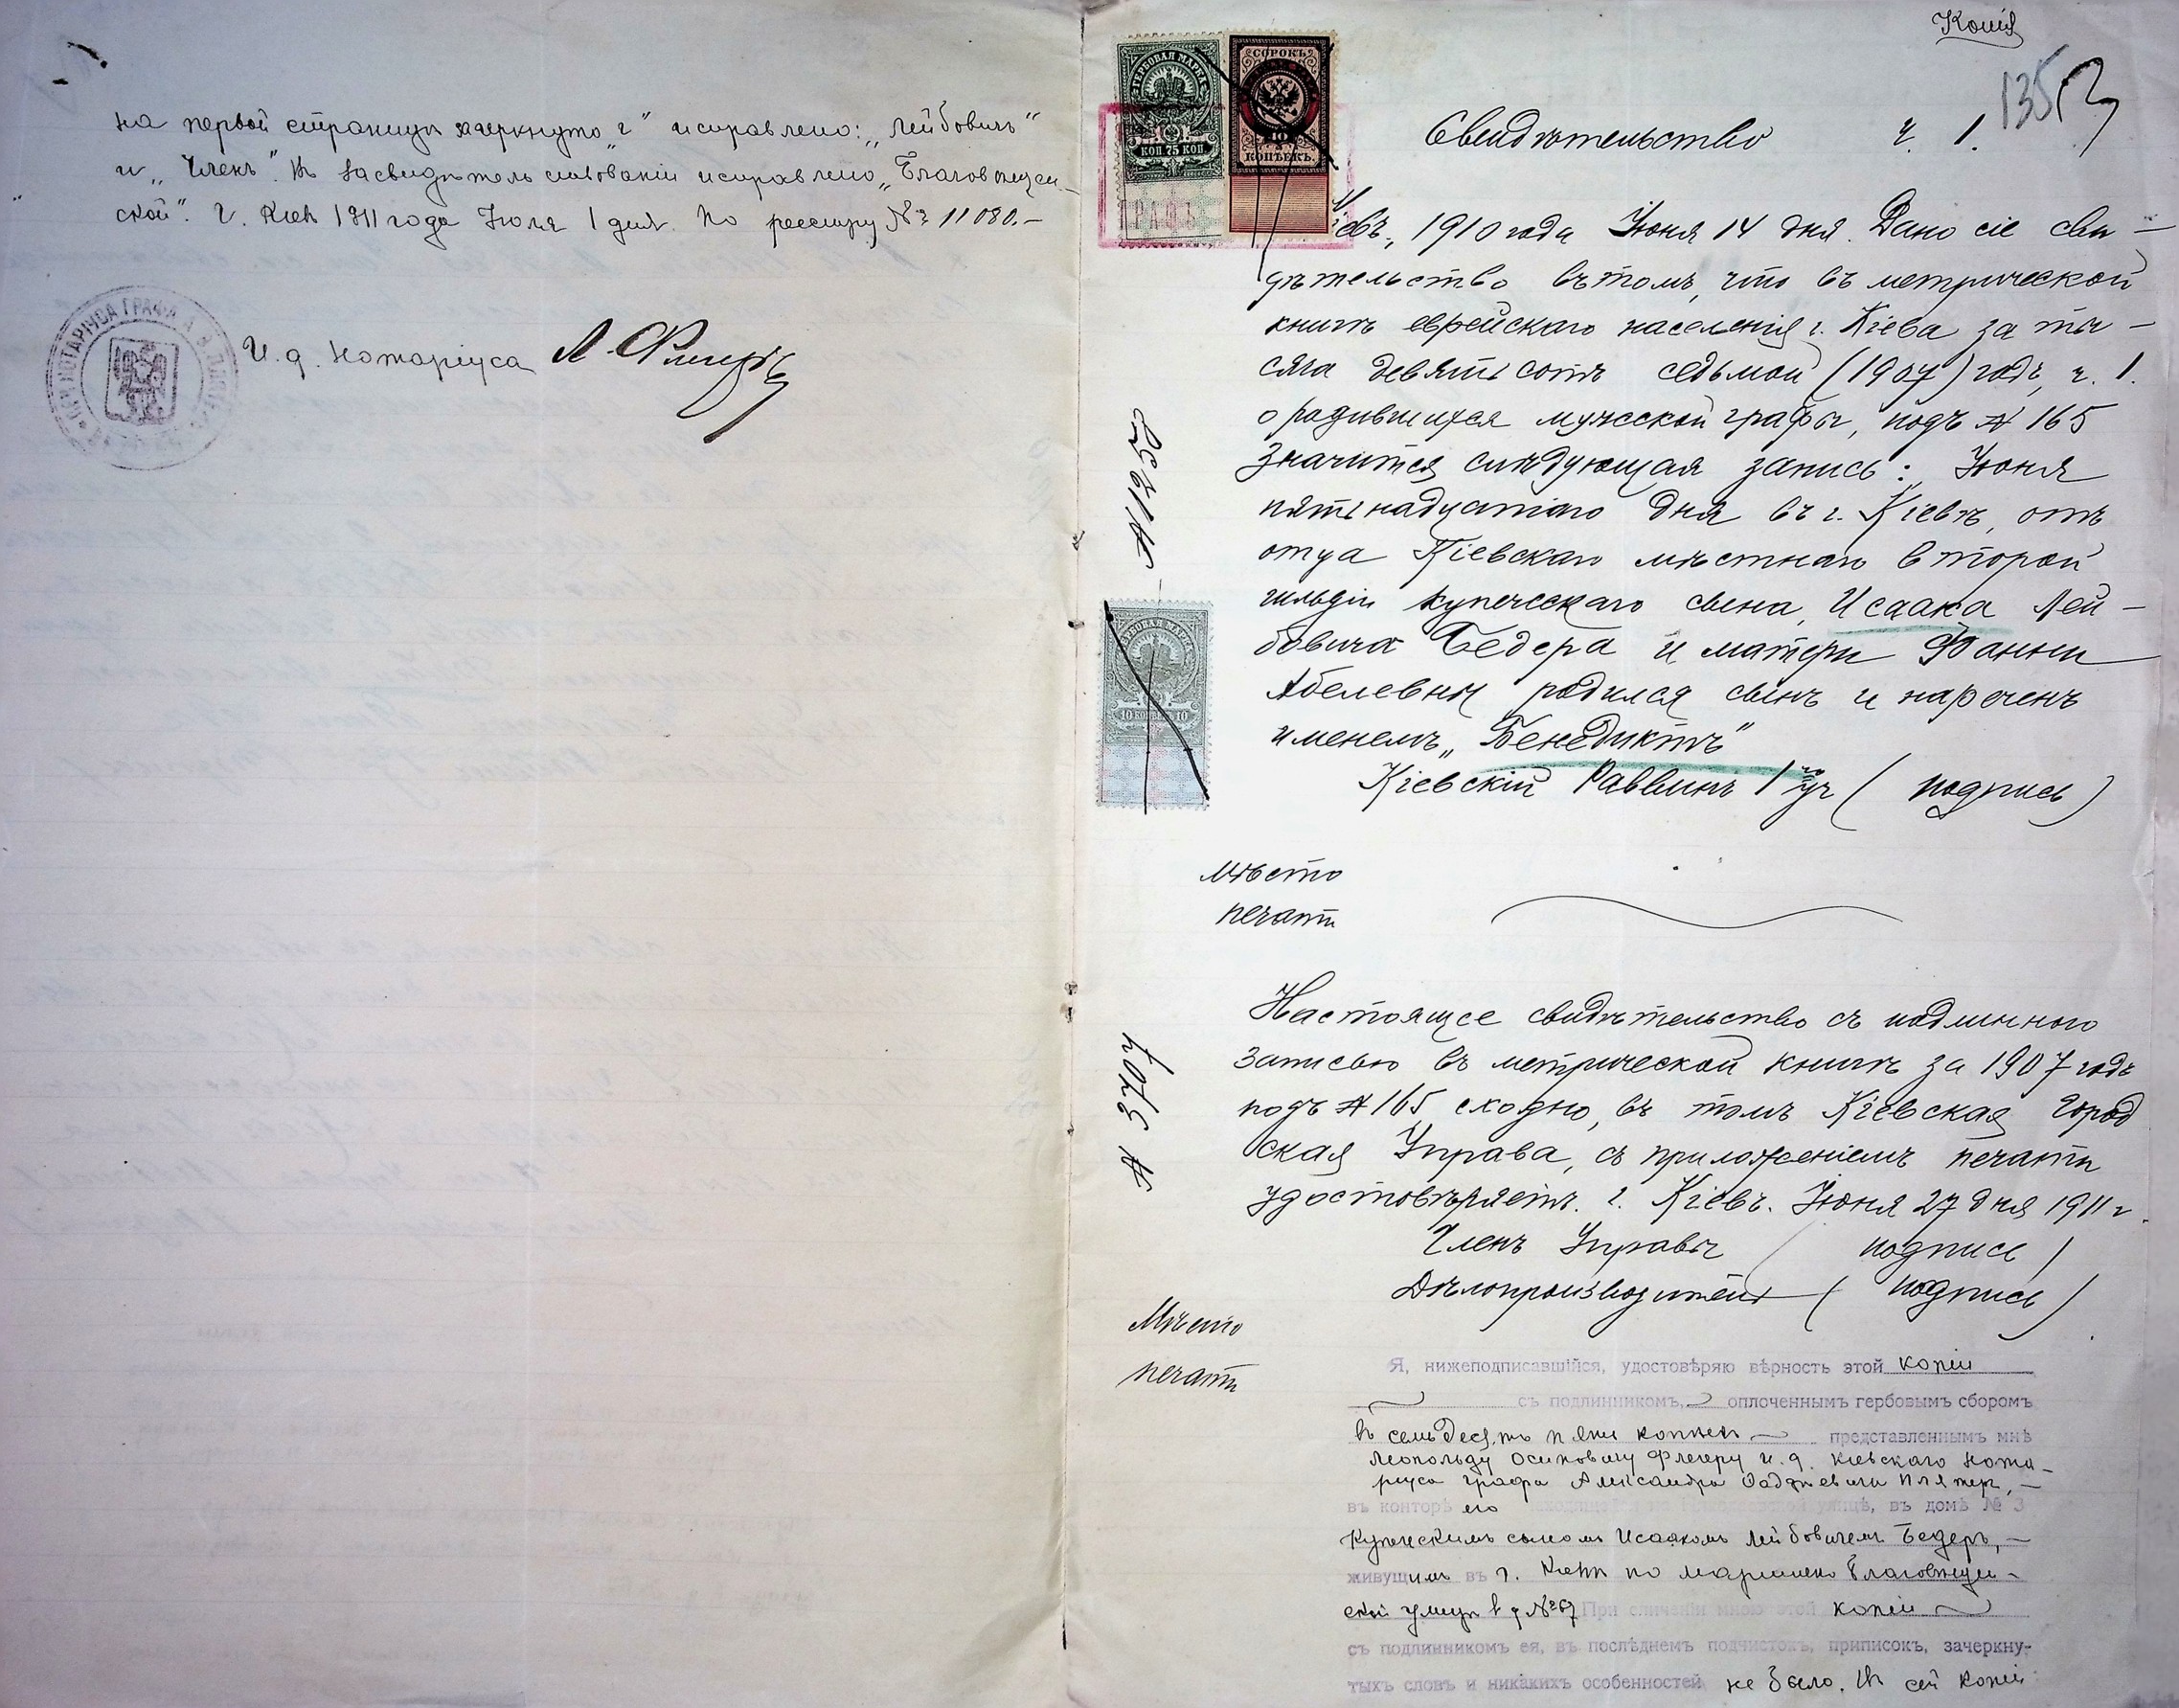 на первой страницѣ зачеркнуто „г" исправлено: „Лейбовичъ"
и „Членъ". Въ засвидѣтельствованіи исправлено „Благовѣщен-
ской". Г. Кіевъ 1911 года Іюля 1 дня. По реестру № 11080.—
И. д. Нотаріуса
Копія
135
Свидѣтельство ч. 1.
ТЕРБОВАЯ МАРКА
КОП 75 КОП
СОРОКЪ
40
КОПѢЕКЪ.
Кіевъ, 1910 года Іюня 14 дня. Дано сіе сви-
дѣтельство въ томъ, что въ метрической
книгѣ еврейскаго населенія г. Кіева за ты-
сяча девятьсотъ седьмой (1907) годъ, ч. 1.
о родившихся мужеской графы, подъ № 165
значится слѣдующая запись: Іюня
пятьнадцатаго дня въ г. Кіевѣ, отъ
отца Кіевскаго мѣстнаго второй
гильдіи купеческаго сына, Исаака Лей-
бовича Бедера и матери Фанни
Абелевны родился сынъ и нареченъ
именемъ „Бенедиктъ"
Кіевскій Раввинъ 1го уч (подпись)
мѣсто
печати
№ 12652
10 КОПѢЕКЪ 10
Настоящее свидѣтельство съ подлинною
записью въ метрической книгѣ за 1907 годъ
подъ № 165 сходно, въ томъ Кіевская Город
ская Управа, съ приложеніемъ печати
удостовѣряетъ. г. Кіевъ. Іюня 27 дня 1911 г.
Членъ Управы (подпись)
Дѣлопроизводитель (подпись)
№ 5707
Мѣсто
печати
Я, нижеподписавшійся, удостовѣряю вѣрность этой копіи
съ подлинникомъ, оплоченнымъ гербовымъ сборомъ
въ семьдесятъ пять копѣекъ представленнымъ мнѣ
Леопольду Осиповичу Флегеру и. д. Кіевскаго Нота-
ріуса графа Александра Фаддѣевича Плятеръ,—
въ конторѣ его улицѣ, въ домѣ № 3
Купеческимъ сыномъ Исаакомъ Лейбовичемъ Бедеръ,—
живущимъ въ г. Кіевѣ по Маріинско Благовѣщен-
ской улицѣ въ д № 67 При сличеніи мною этой копіи
съ подлинникомъ ея, въ послѣднемъ подчистокъ, приписокъ, зачеркну-
тыхъ словъ и никакихъ особенностей не было. Въ сей копіи